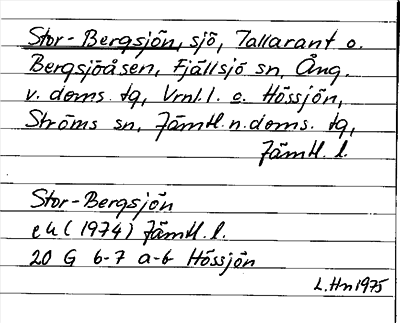 Stor-Bergsjön, sjö, Tallarant o.
Bergsjöåsen, Fjällsjö sn, Ång.
v. doms. tg, Vrnl. l. o. Hössjön,
Ströms sn, Jämtl. n. doms. tg,
Jämtl. l.
Stor-Bergsjön
ek (1974) Jämtl. l.
20 G 6-7 a-b Hössjön
L. Hn 1975